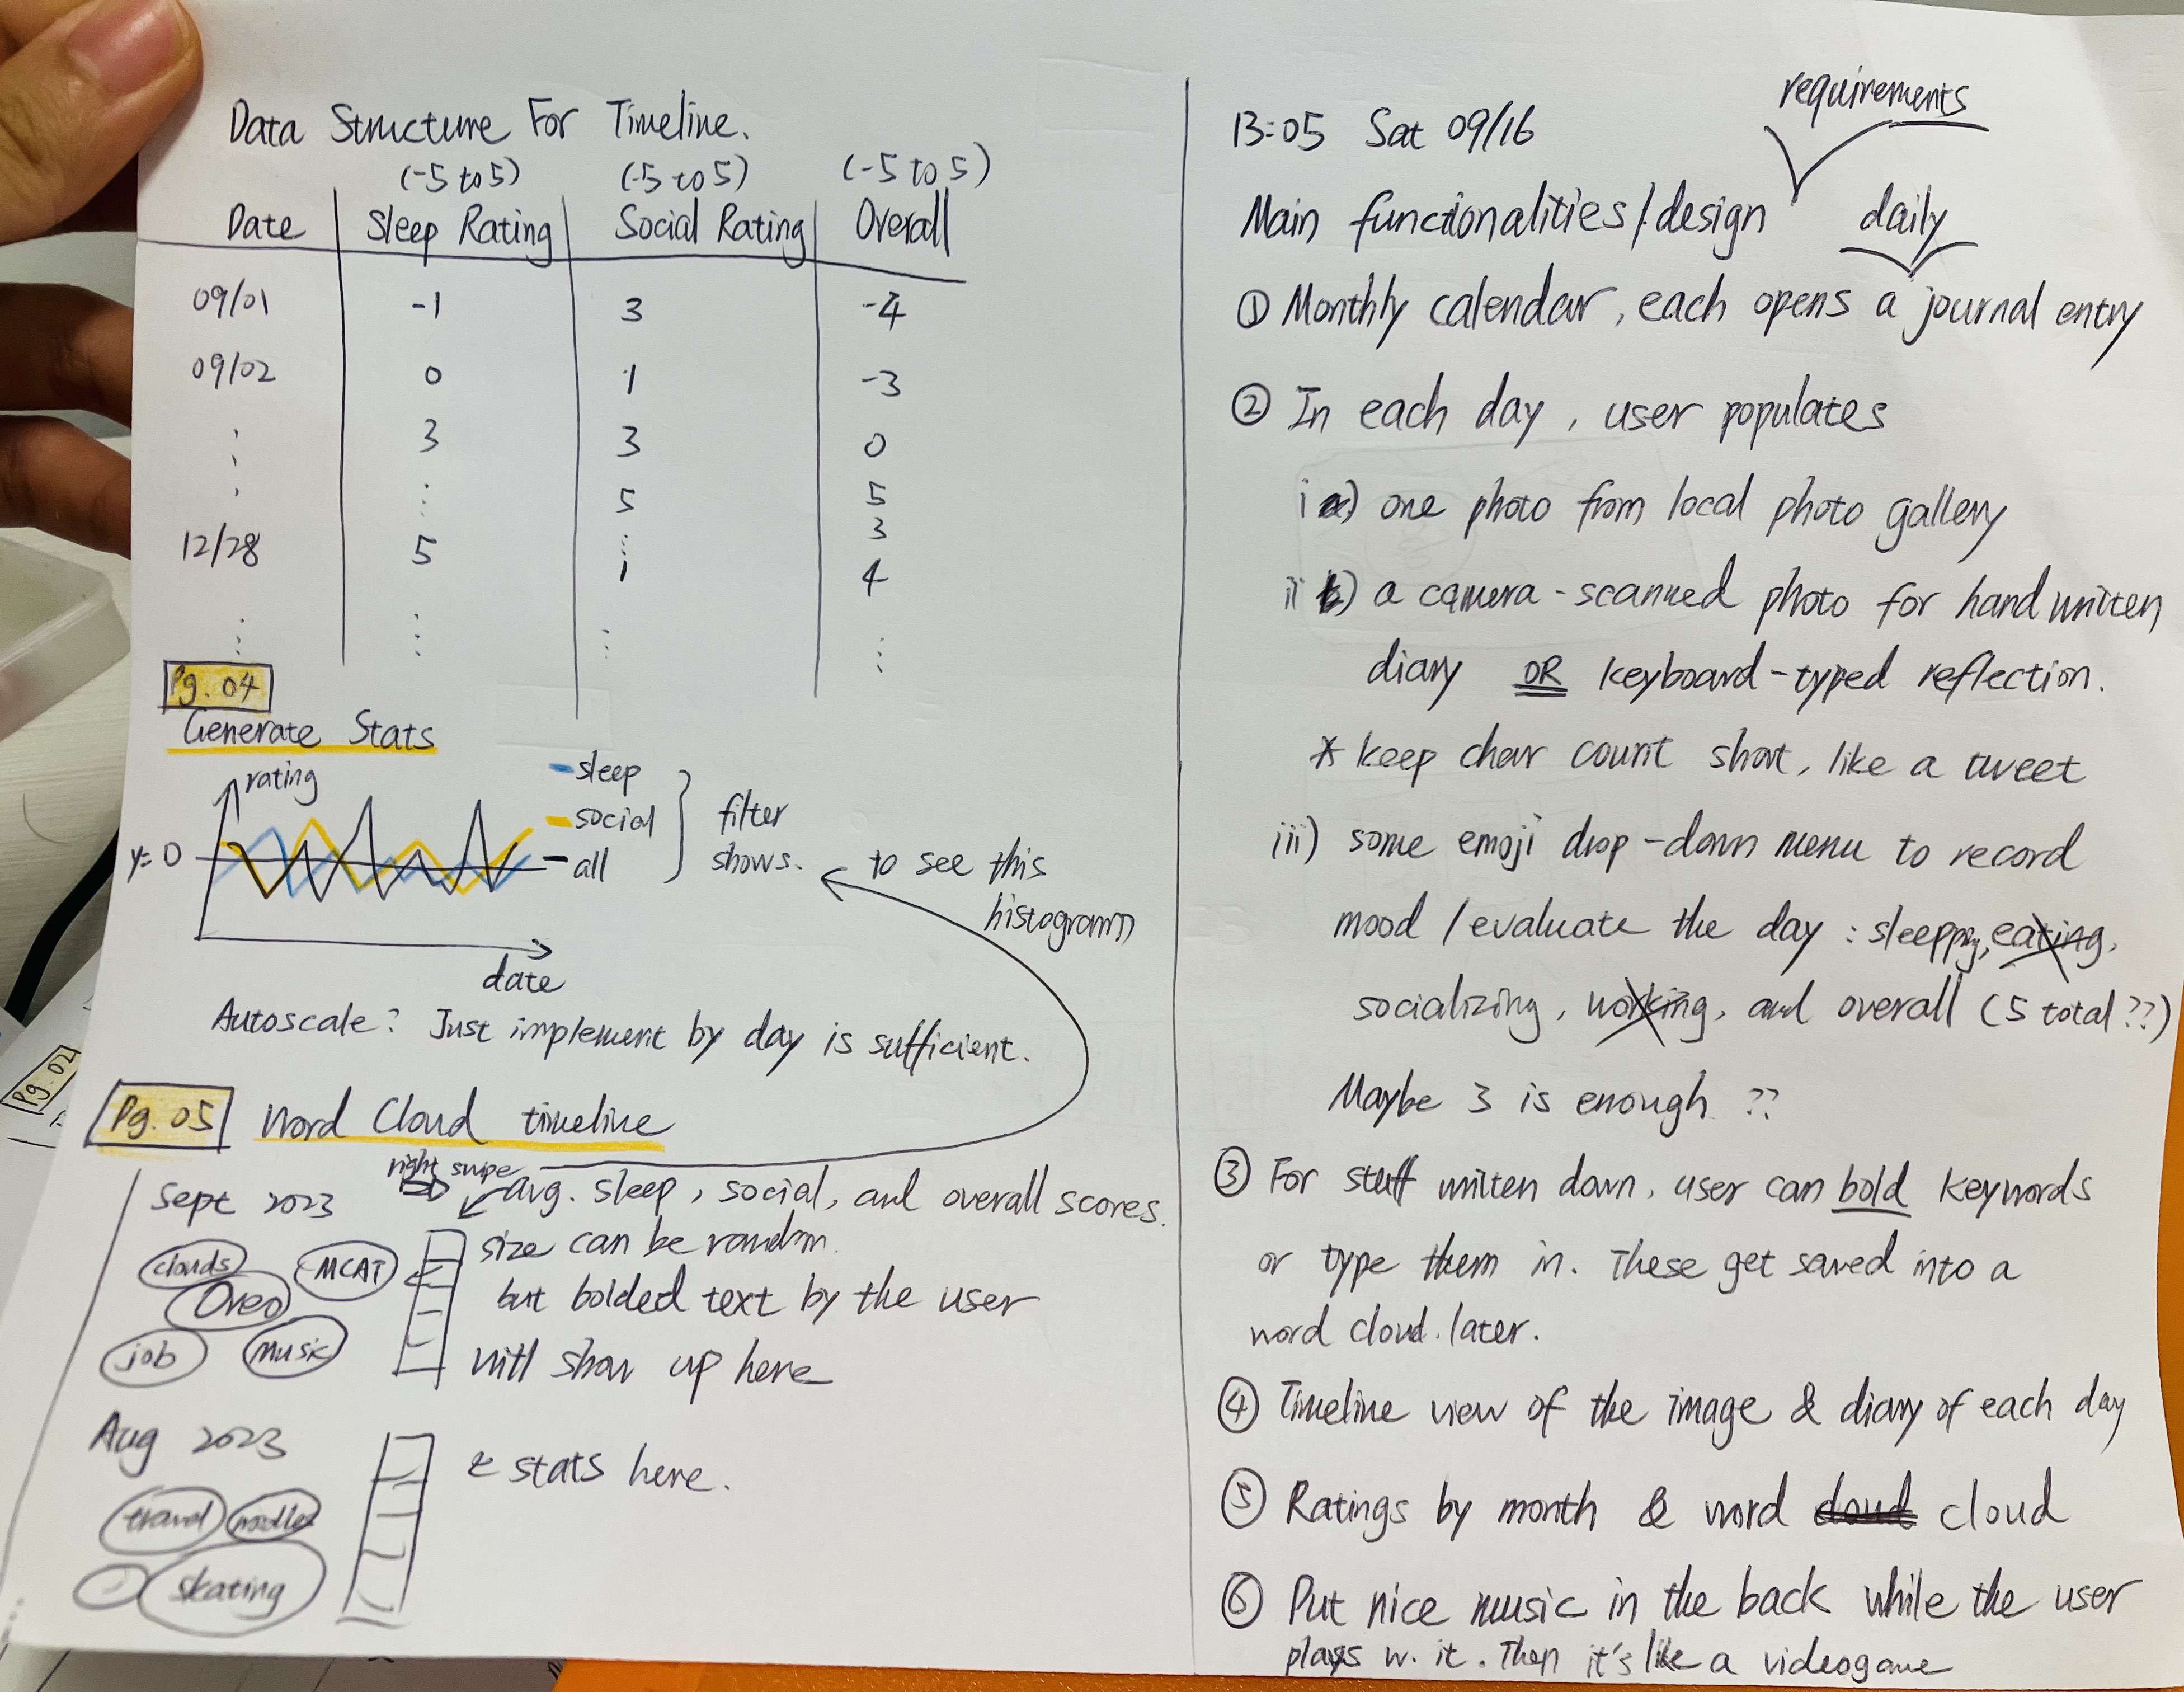 Data Structure For Timeline.
(-5 to 5) (-5 to 5) (-5 to 5)
Date Sleep Rating Social Rating Overall
09/01 -1 3 -4
09/02 0 1 -3
3 3 0
5 5
3
12/28 5 1 4
Pg. 04
Generate Stats
rating
y=0
sleep
social
all
filter
shows.
to see this
histogram
date
Autoscale? Just implement by day is sufficient.
Pg. 05 Word Cloud timeline
right swipe
Sept 2023
avg. sleep, social, and overall scores.
clouds
MCAT
Oreo
job
music
size can be random
but bolded text by the user
will show up here
Aug 2023
travel
noodles
skating
stats here.
Pg. 02
requirements
13:05 Sat 09/16
Main functionalities/design
daily
① Monthly calendar, each opens a journal entry
② In each day, user populates
i) one photo from local photo gallery
ii) a camera-scanned photo for handwritten
diary OR keyboard-typed reflection.
* keep char count short, like a tweet
iii) some emoji drop-down menu to record
mood / evaluate the day : eating,
socializing, working, and overall (5 total??)
Maybe 3 is enough ??
③ For stuff written down, user can bold keywords
or type them in. These get saved into a
word cloud. later.
④ Timeline view of the image & diary of each day
⑤ Ratings by month & word cloud cloud
⑥ Put nice music in the back while the user
plays w. it. Then it's like a videogame